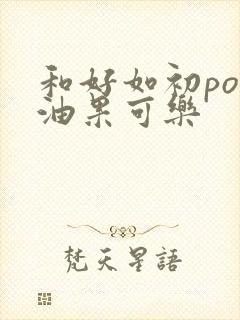 和好如初po
油果可樂
梵天星語